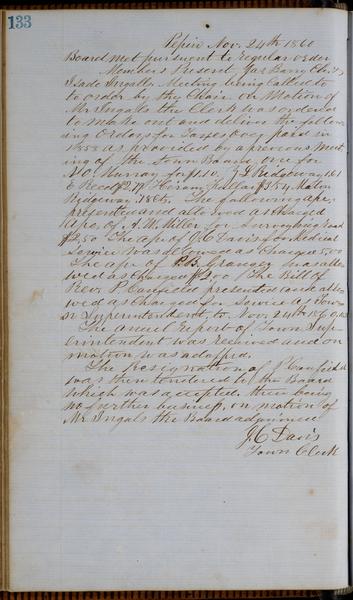 133
Pepin Nov. 24th 1860
Board met pursuant to regular order
Members Present Jas Barry Ch.
Isade Ingalls. Meeting being called
to order by the Chair. on Motion of
Mr Ingals the Clerk was ordered
to make out and deliver the follow-
ing Orders for Taxes Over paid in
1858 as provided by a previous meet
ing of the Town Board, one for
Wo. Murray for
E Reed Hiram Fuller $3.54
Ridgeway. The following a/cs.
presented and allowed as charged
a/c. of A. W. Miller for Surveying Road
$2.50 The a/c of J. C Davis for Medical
Service was allowed as Charged 5,00
The a/c of was allo-
wed as Charged $2.00 The Bill of
Rev. P Canfield presented and allo-
wed as Charged for Service as Town
Superintendent to Nov. 24th 1860
The Annual Report of Town Sup-
erintendent was received and on
motion was adopted.
The Resignation of P Canfield
was then tendered to the Board
which was accepted. there being
no further business, on motion of
Mr Ingals the Board adjourned
J. C Davis
Town Clerk